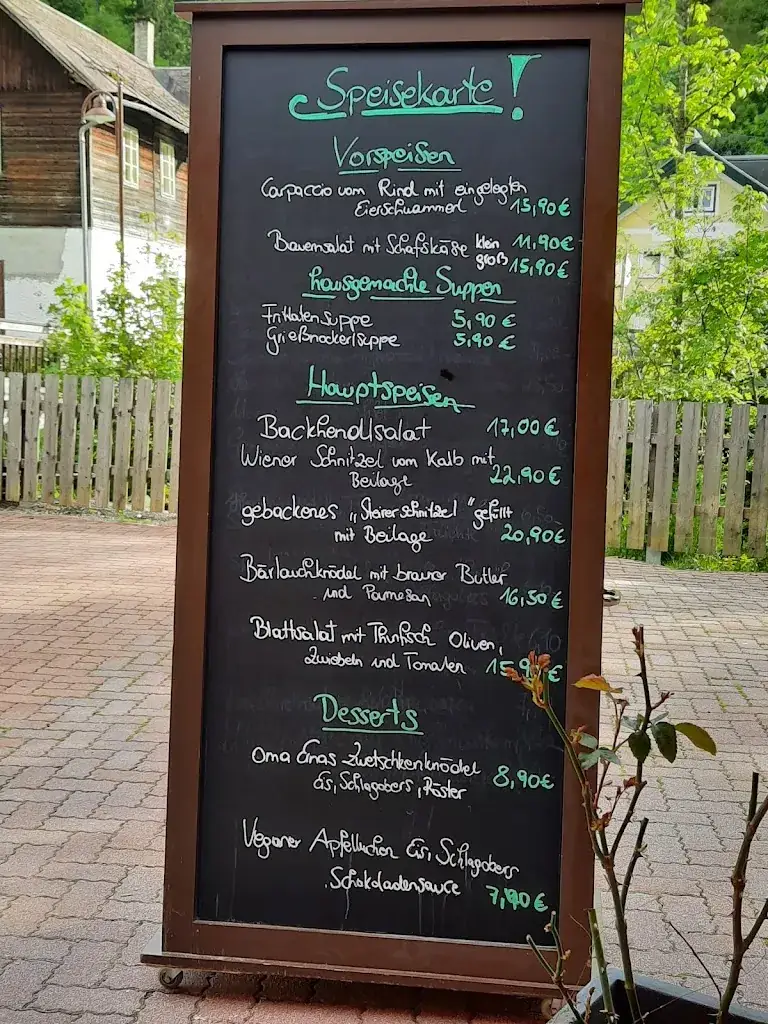 Speisekarte!
Vorspeisen
Carpaccio vom Rind mit eingelegten
Eierschwammerl 15,90 €
Bauernsalat mit Schafskäse klein 11,90 €
groß 15,90 €
hausgemachte Suppen
Frittatensuppe 5,90 €
Grießnockerlsuppe 5,90 €
Hauptspeisen
Backhendlsalat 17,00 €
Wiener Schnitzel vom Kalb mit
Beilage 22,90 €
gebackenes „Steirerschnitzel" gefüllt
mit Beilage 20,90 €
Bärlauchknödel mit brauner Butter
und Parmesan 16,50 €
Blattsalat mit Thunfisch Oliven,
Zwiebeln und Tomaten 15,90 €
Desserts
Oma Ernas Zwetschkenknödel
Eis, Schlagobers, Röster 8,90 €
Veganer Apfelkuchen Eis, Schlagobers
Schokoladensauce 7,90 €